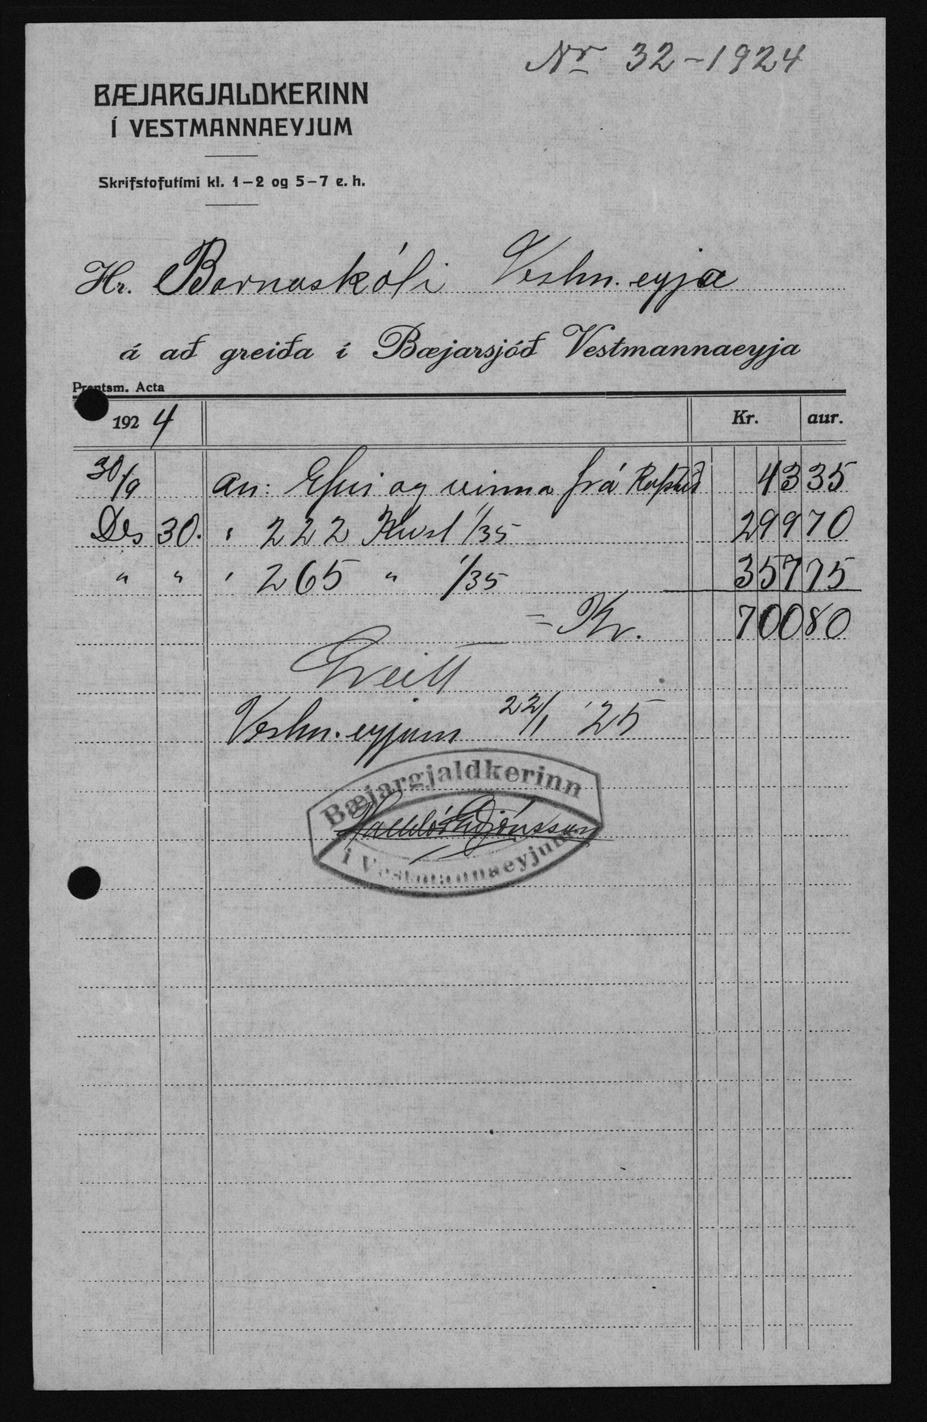 Nr 32-1924
BÆJARGJALDKERINN
Í VESTMANNAEYJUM
Skrifstofutími kl. 1-2 og 5-7 e. h.
Hr. Barnaskóli Vestm.eyja
á að greiða í Bæjarsjóð Vestmannaeyja
Prentsm. Acta
1924 Kr. aur.
30/9 an: Efni og vinna frá Rafstöð 43 35
Des 30. " 222 Kwst 1/35 299 70
" " " 265 " 1/35 357 75
= Kr. 700 80
Greitt
Vestm.eyjum 22/1 '25
Bæjargjaldkerinn
í Vestmannaeyjum